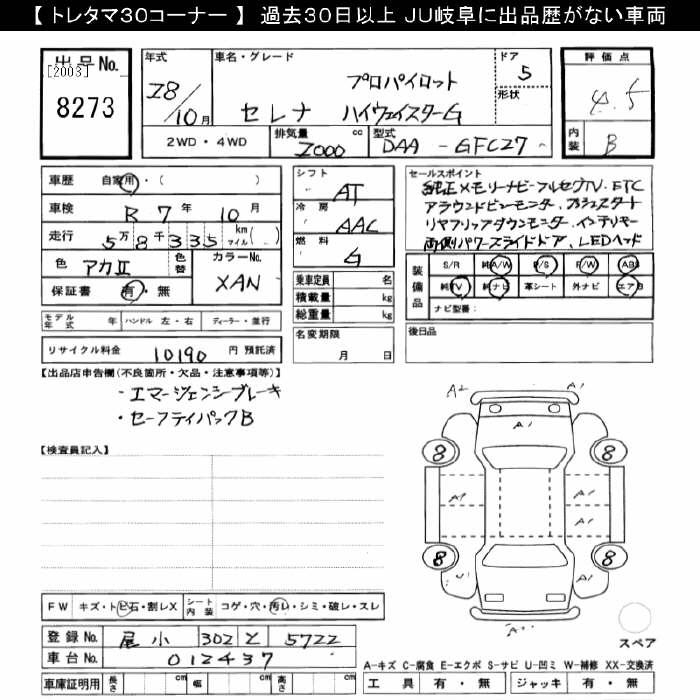 【 トレタマ30コーナー 】 過去30日以上 JU岐阜に出品歴がない車両
出品No.
[2003]
8273
年式
28/10月
車名・グレード
プロパイロット
セレナ ハイウェイスターG
ドア
5
形状
評価点
4.5
内装
B
2WD・4WD
排気量
2000
cc
型式
DAA - GFC27
車歴 自家用・( )
車検 R 7年 10月
走行 5万8千335 km マイル( )
色 アカⅡ
色替
カラーNo.
XAN
保証書 有・無
シフト
AT
冷房
AAC
燃料
G
乗車定員 名
積載量 kg
総重量 kg
名変期限
月 日
セールスポイント
純正メモリーナビ・フルセグTV、ETC
アラウンドビューモニター、
リヤフリップダウンモニター、インテリキー
両側パワースライドドア、LEDヘッド
装備品
S/R 純A/W P/S P/W ABS
純TV 純ナビ 革シート 外ナビ エアB
ナビ型番:
モデル年式 年 ハンドル 左・右 ディーラー・並行
後日品
リサイクル料金 10190 円 預託済
【出品店申告欄(不良箇所・欠品・注意事項等)】
・エマージェンシーブレーキ
・セーフティパックB
【検査員記入】
A2
A1
A1
8
8
A1
A1
A1
8
8
U1
A1
スペア
FW キズ・トビ石・割レX
シート内装 コゲ・穴・汚レ・シミ・破レ・スレ
登録No. 尾小 302 と 5722
車台No. 012437
A-キズ C-腐食 E-エクボ S-サビ U-凹ミ W-補修 XX-交換済
車庫証明用 長さ cm 幅 cm 高さ cm
工具 有・無 ジャッキ 有・無